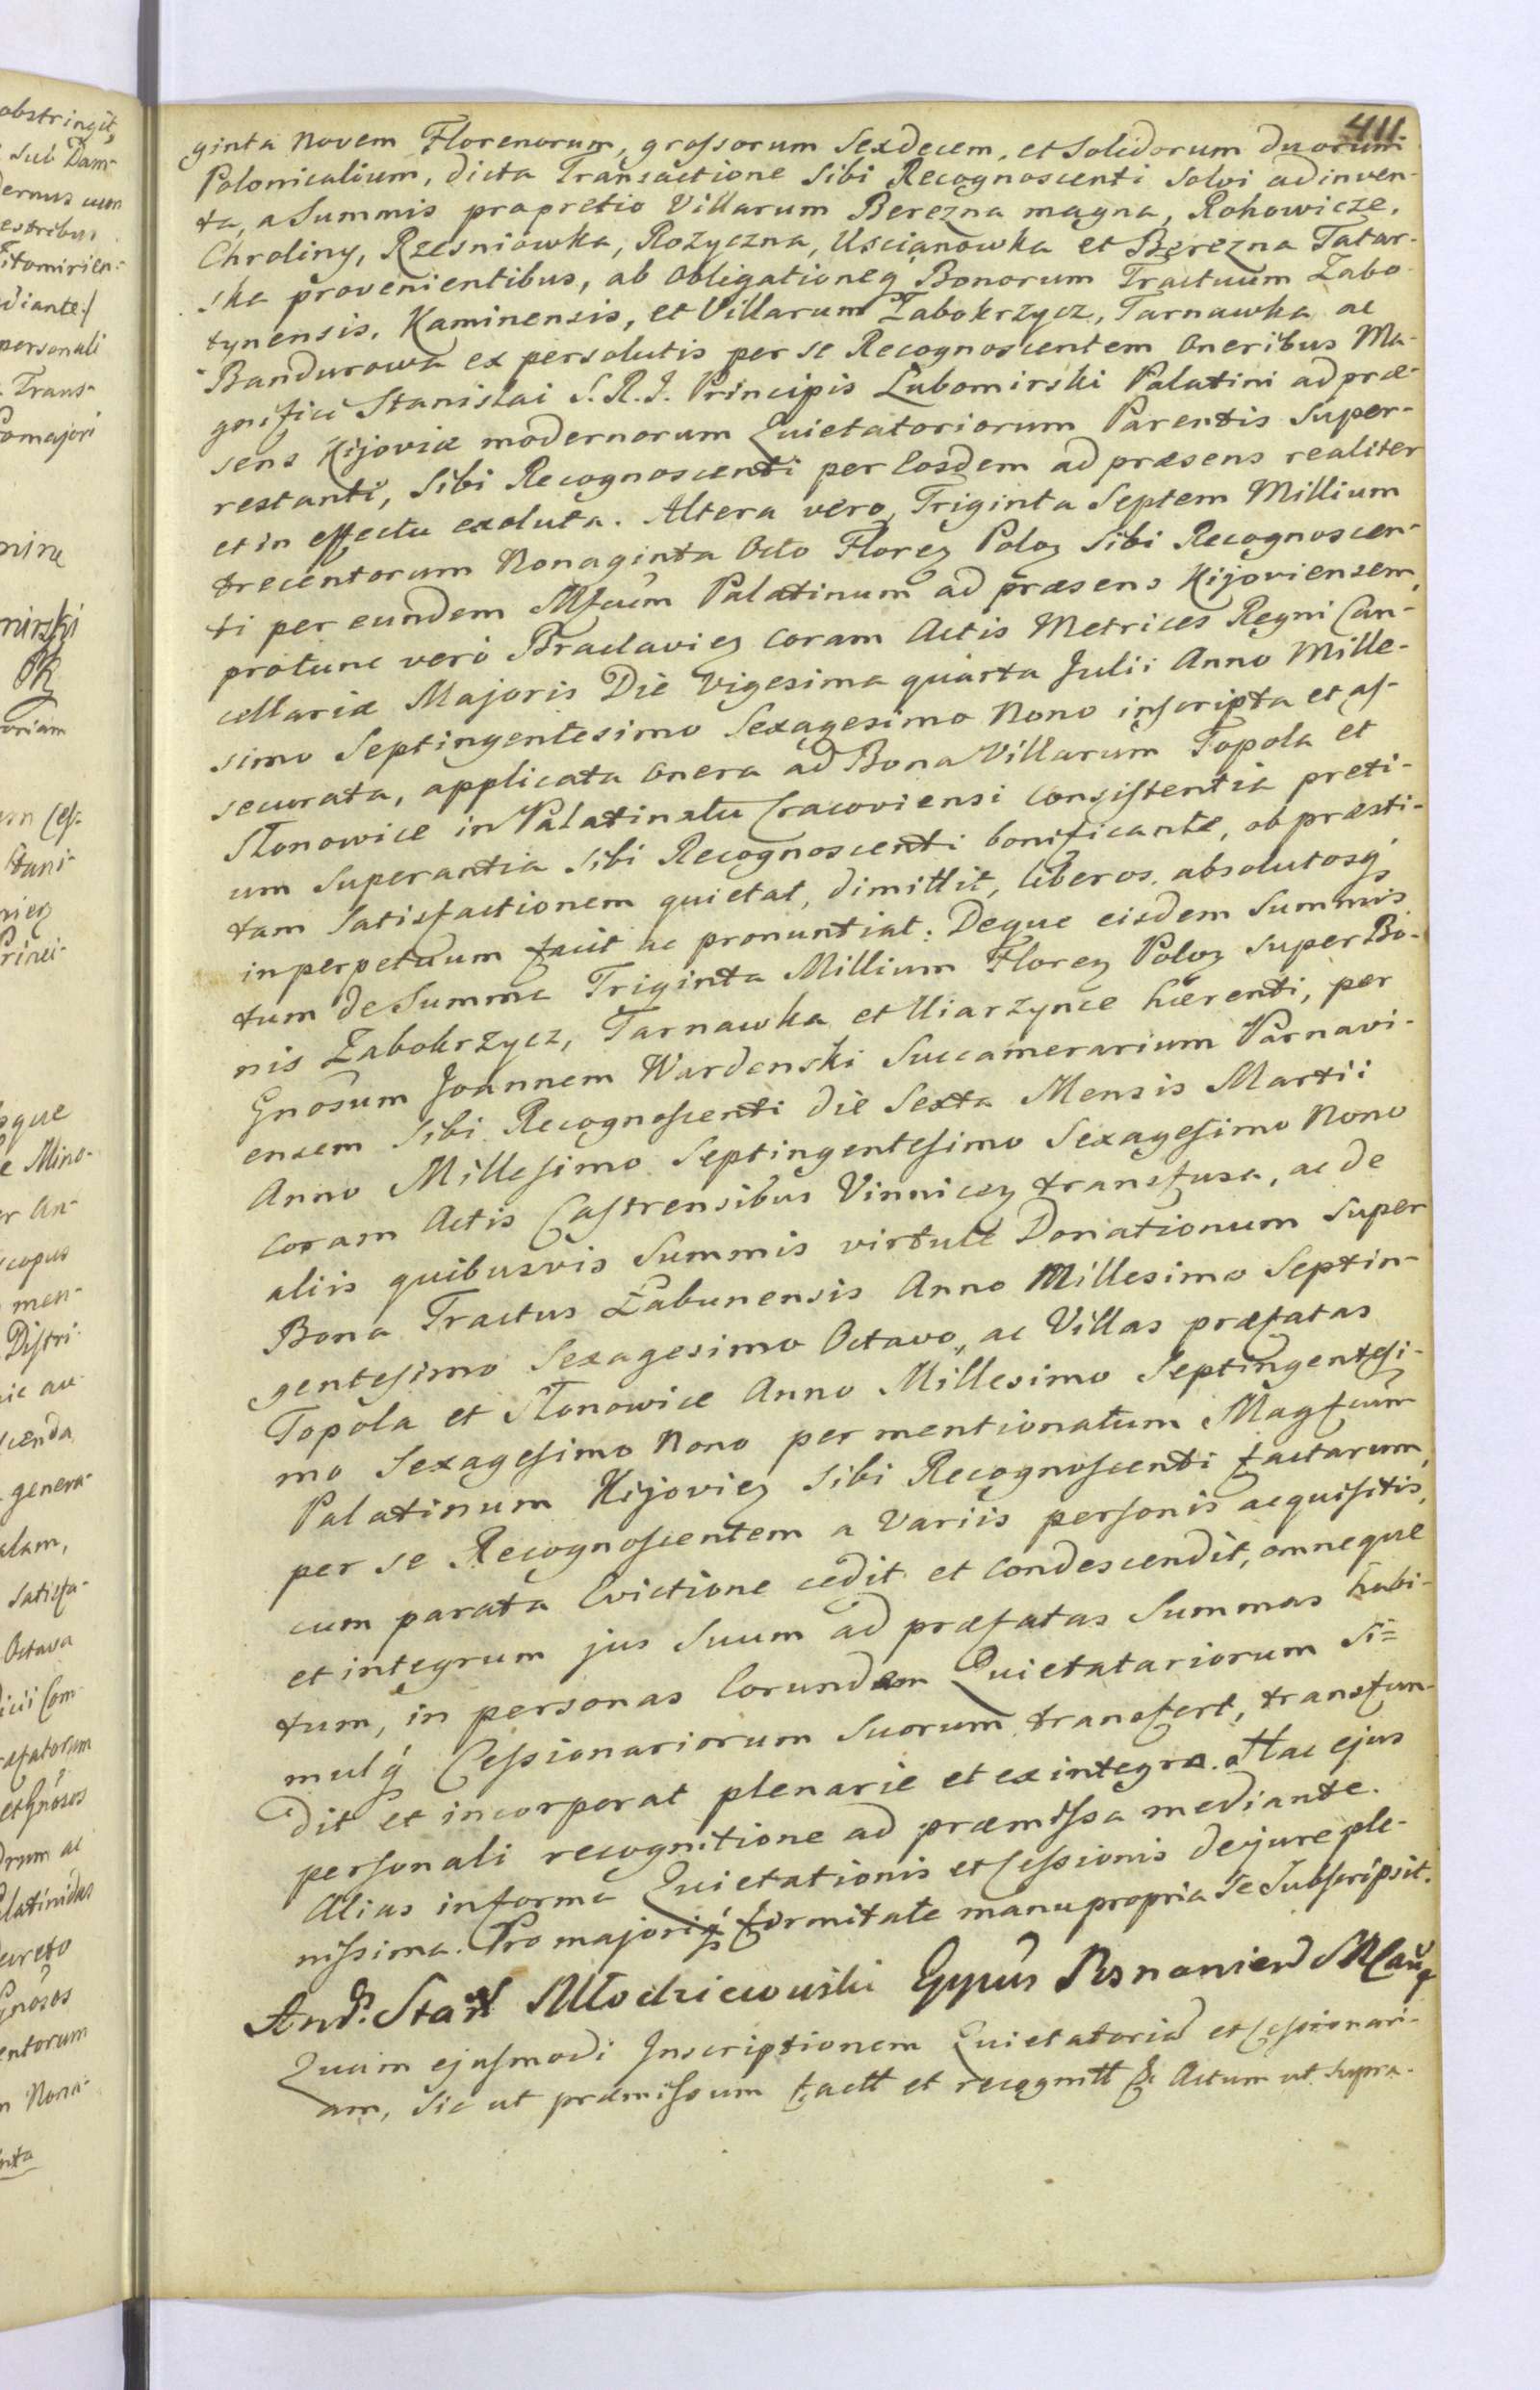 411
ginta Novem Florenorum, grossorum Sexdecem, et Solidorum duorum
Polonicalium, dicta Transactione Sibi Recognoscenti Solvi adinven-
ta, a Summis propretio Villarum Berezna magna, Rohowicze,
Chroliny, Rzesniowka, Rozyczna, Uscianowka et Berezna Tatar-
ska provenientibus, ab obligationeq Bonorum Tractuum Labo-
tynensis, Kaminensis, et Villarum Zabokrzycz, Tarnawka ac
Bandurowa ex persolutis per se Recognoscentem Oneribus Ma-
gnifici Stanislai S. R. I. Principis Lubomirski Palatini ad præ-
sens Kijoviæ modernorum Quietatoriorum Parentis Super-
restanti, Sibi Recognoscenti per Eosdem ad præsens realiter
et in effectu exoluta. Altera vero, Triginta Septem Millium
trecentorum Nonaginta Octo Florez Poloz Sibi Recognoscen-
ti per eundem Mfcum Palatinum ad præsens Kijoviensem,
protunc vero Braclaviez Coram Actis Metrices Regni Can-
cellariæ Majoris Die Vigesima quarta Julii Anno Mille-
simo Septingentesimo Sexagesimo Nono inscripta et as-
securata, applicata Onera ad Bona Villarum Topola et
Stonowice in Palatinatu Cracoviensi Consistentia preti-
um Superantia Sibi Recognoscenti bonificante, ob præsti-
tam Satisfactionem quietat, dimittit, liberos absolutosq
in perpetuum facit ac pronuntiat: Deque eisdem Summis
tum de Summa Triginta Millium Florez Poloz Super Bo-
nis Zabokrzycz, Tarnawka et Uiarzynce hærenti, per
Gnosum Joannem Wardenski Succamerarium Parnavi-
ensem Sibi Recognoscenti die Sexta Mensis Martii
Anno Millesimo Septingentesimo Sexagesimo Nono
Coram Actis Castrensibus Vinnicez transfusa, ac de
aliis quibusvis Summis virtute Donationum Super
Bona Tractus Labunensis Anno Millesimo Septin-
gentesimo Sexagesimo Octavo, ac Villas præfatas
Topola et Stonowice Anno Millesimo Septingentesi-
mo Sexagesimo Nono per mentionatum Magfcum
Palatinum Kijoviez Sibi Recognoscenti factarum,
per se Recognoscentem a Variis personis acquisitis,
cum parata Evictione cedit et Condescendit, omneque
et integrum jus Suum ad præfatas Summas habi-
tum, in personas Eorundem Quietatariorum Si-
mulq Cessionariorum Suorum transfert, transfun-
dit et incorporat plenarie et ex integra. Hac ejus
personali recognitione ad præmissa mediante.
Alias informa Quietationis et Cessionis dejure ple-
nissima. Pro majoriq firmitate manu propria Se Subscripsit.
And. Stan Młodziewuiski Eppus Posnanien M Canq
Quam ejusmodi Inscriptionem Quietatoriam et Cessionari-
am, Sic ut præmissum factt et recognitt & Actum ut Supra.